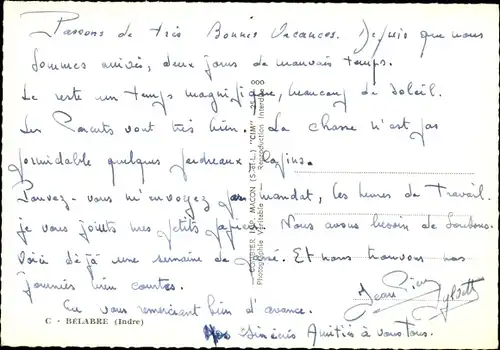 Passons de très Bonnes Vacances. Depuis que nous
sommes arrivés, deux jours de mauvais temps.
Le reste un temps magnifique, beaucoup de soleil.
Les Parents vont très bien. La chasse n'est pas
formidable quelques perdreaux lapins.
Pouvez-vous m'envoyez par mandat, les heures de Travail.
je vous joints mes petits papiers. Nous avons besoin de
Voici déjà une semaine de passé. Et nous trouvons nos
journées bien courtes.
En vous remerciant bien d'avance.
Jean Pierre
Nos Sincères Amitiés à vous tous.
C - BÉLABRE (Indre)
COMBIER IMP. MACON (S.-et-L.) "CIM"
Photographie Véritable - Reproduction Interdite